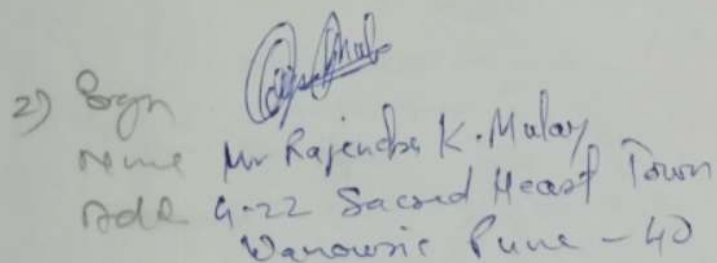 2) Sign
Name Mr Rajendra K. Mulay
Add G-22 Sacred Heart Town
Wanowrie Pune - 40